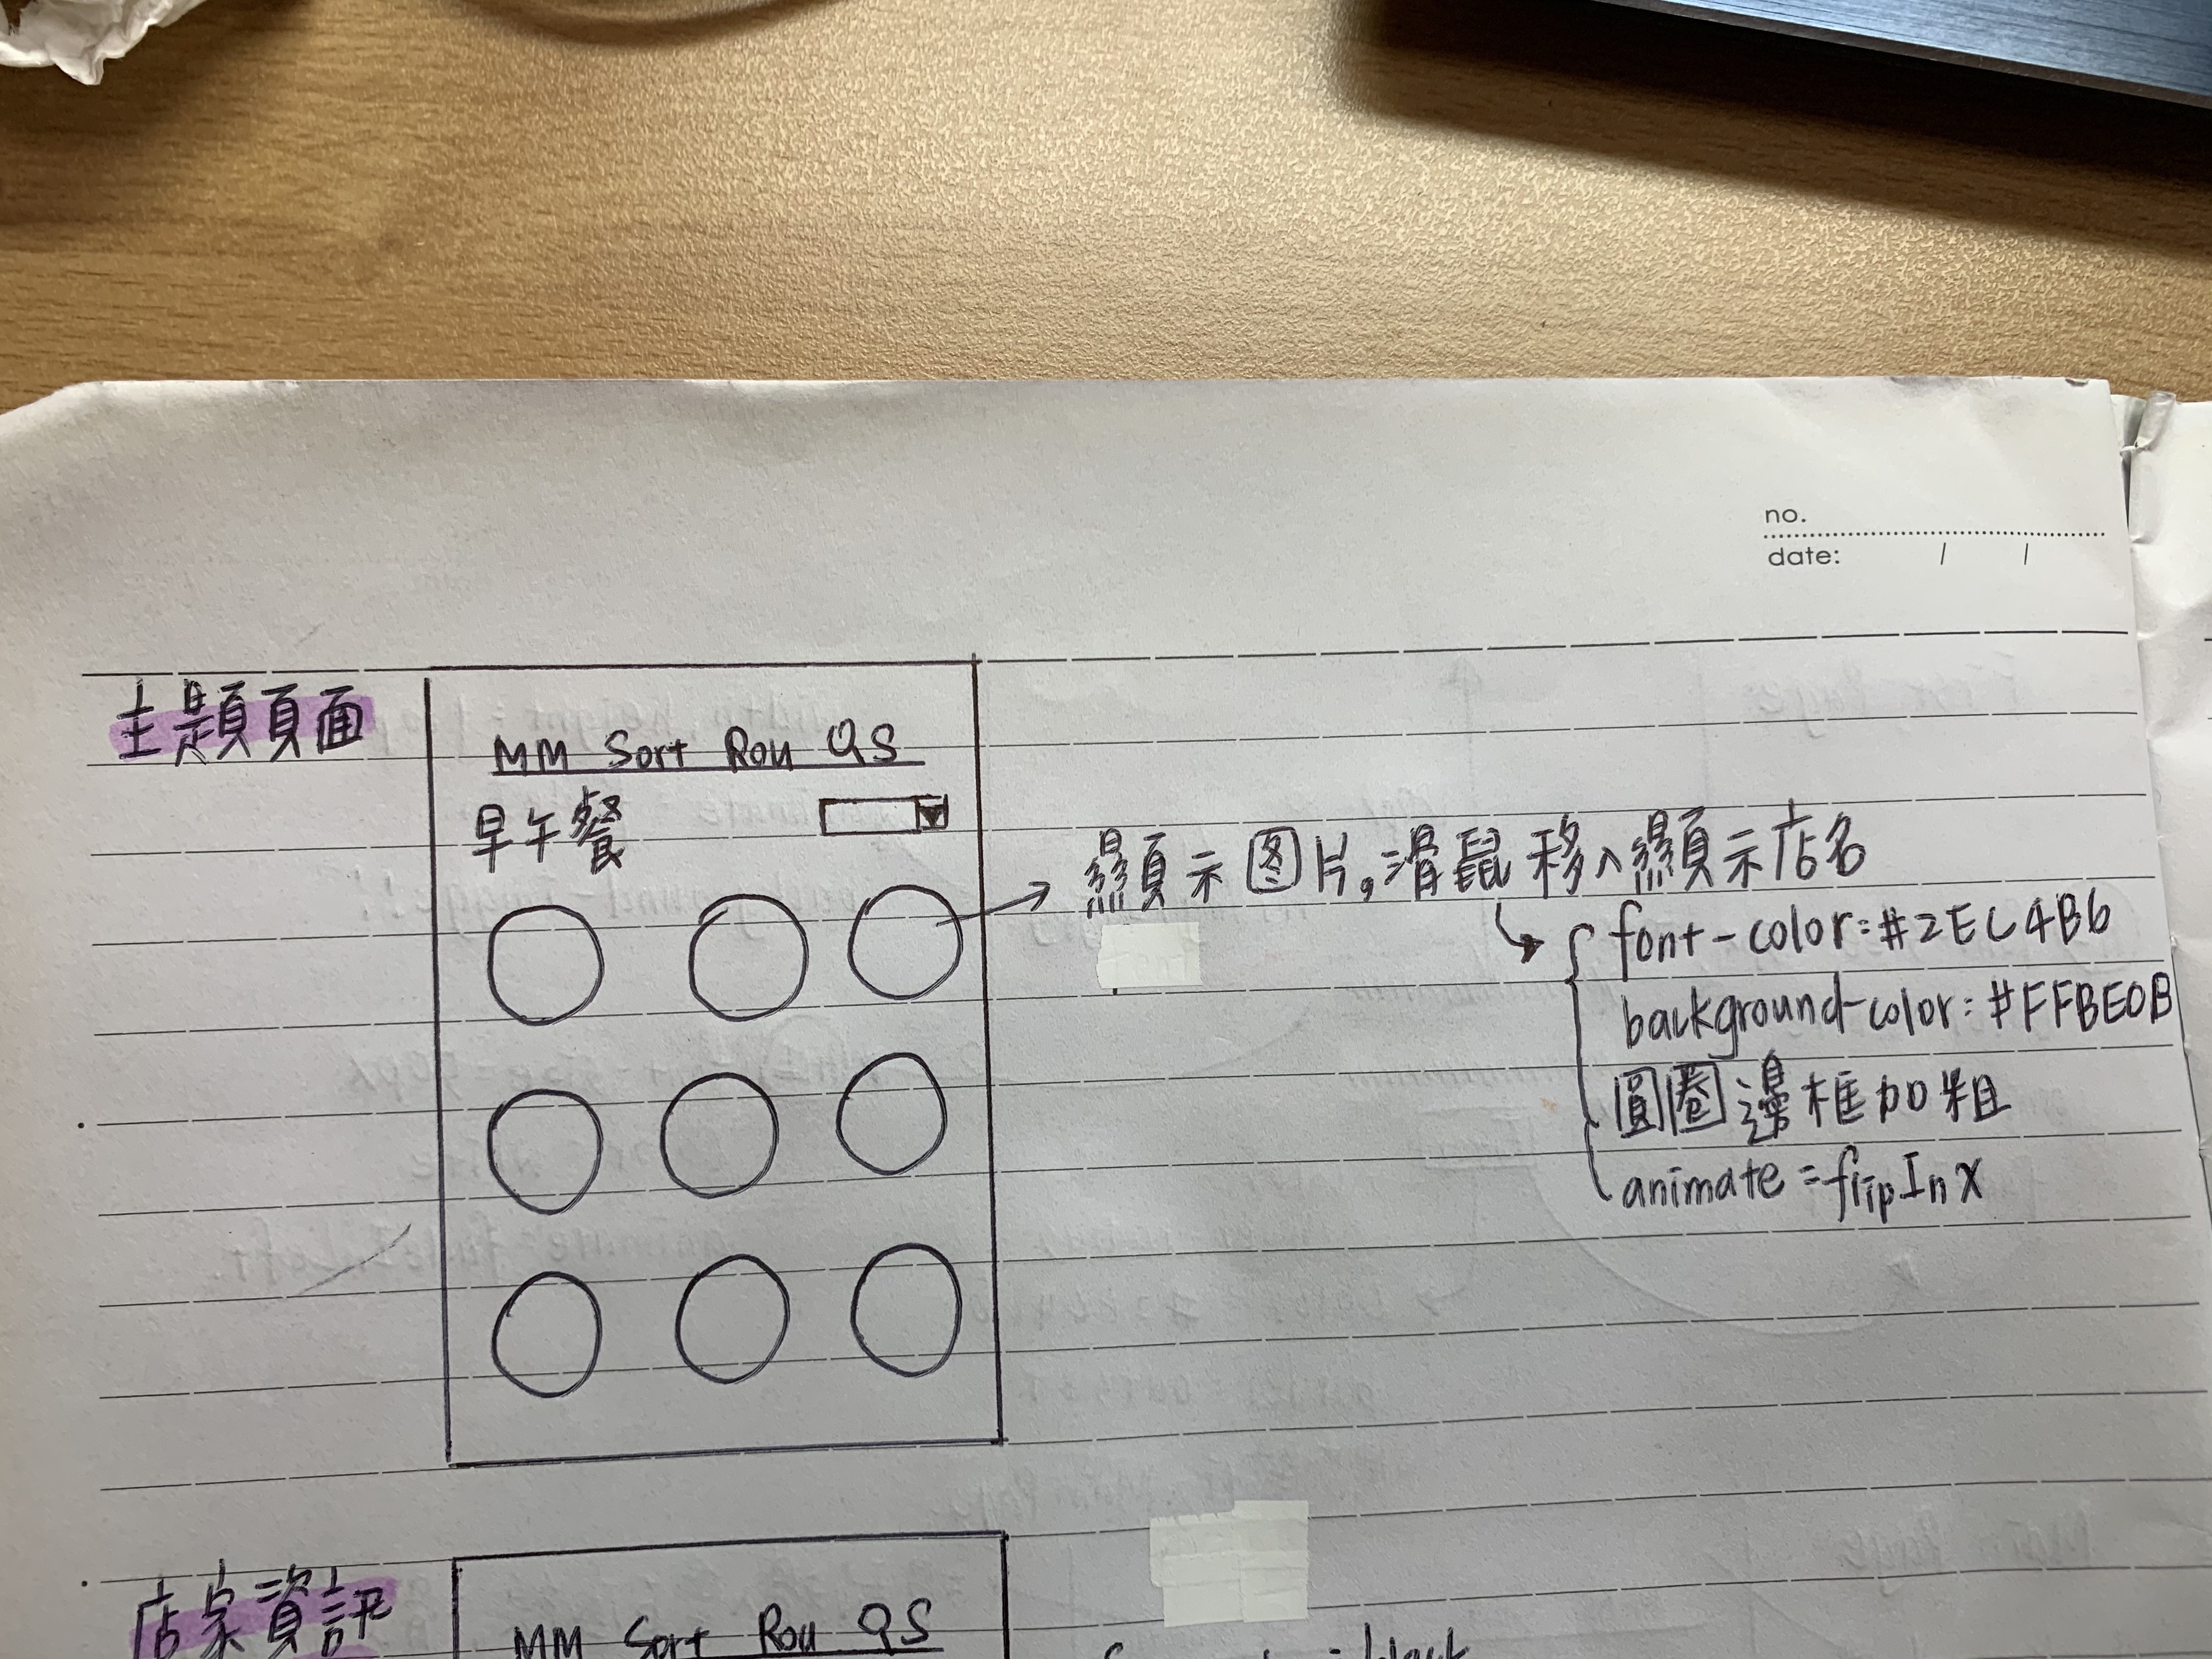 no.
date: / /
主題頁面
MM Sort Rou QS
早午餐
顯示图片,滑鼠移入顯示店名
font-color:#2EC4B6
background-color:#FFBE0B
圓圈邊框加粗
animate=flipInX
店家資訊
MM Sort Rou QS